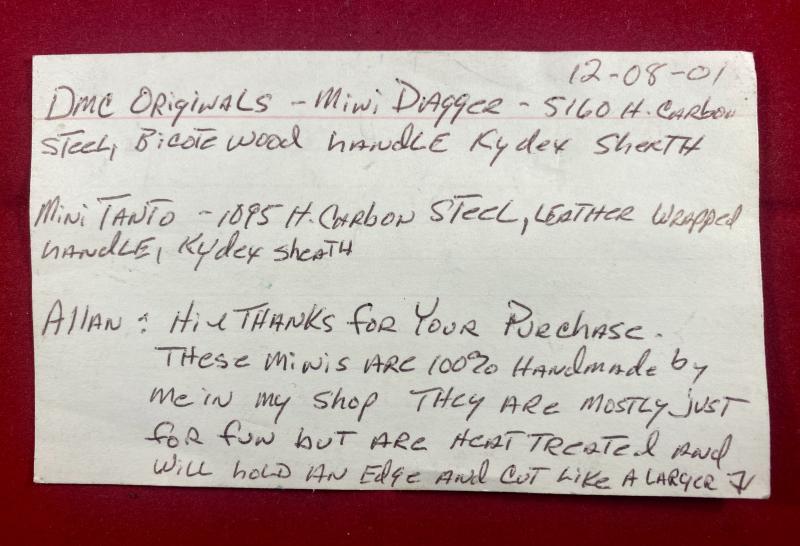 12-08-01
DMC Originals - Mini Diagger - 5160 H. Carbon
Steel, Bicote wood handle Kydex Sheath
Mini Tanto - 1095 H. Carbon Steel, Leather wrapped
handle, Kydex sheath
Allan: Hi & Thanks for Your Purchase.
These minis are 100% Handmade by
me in my shop They are mostly just
for fun but are heat treated and
will hold an edge and cut like a larger